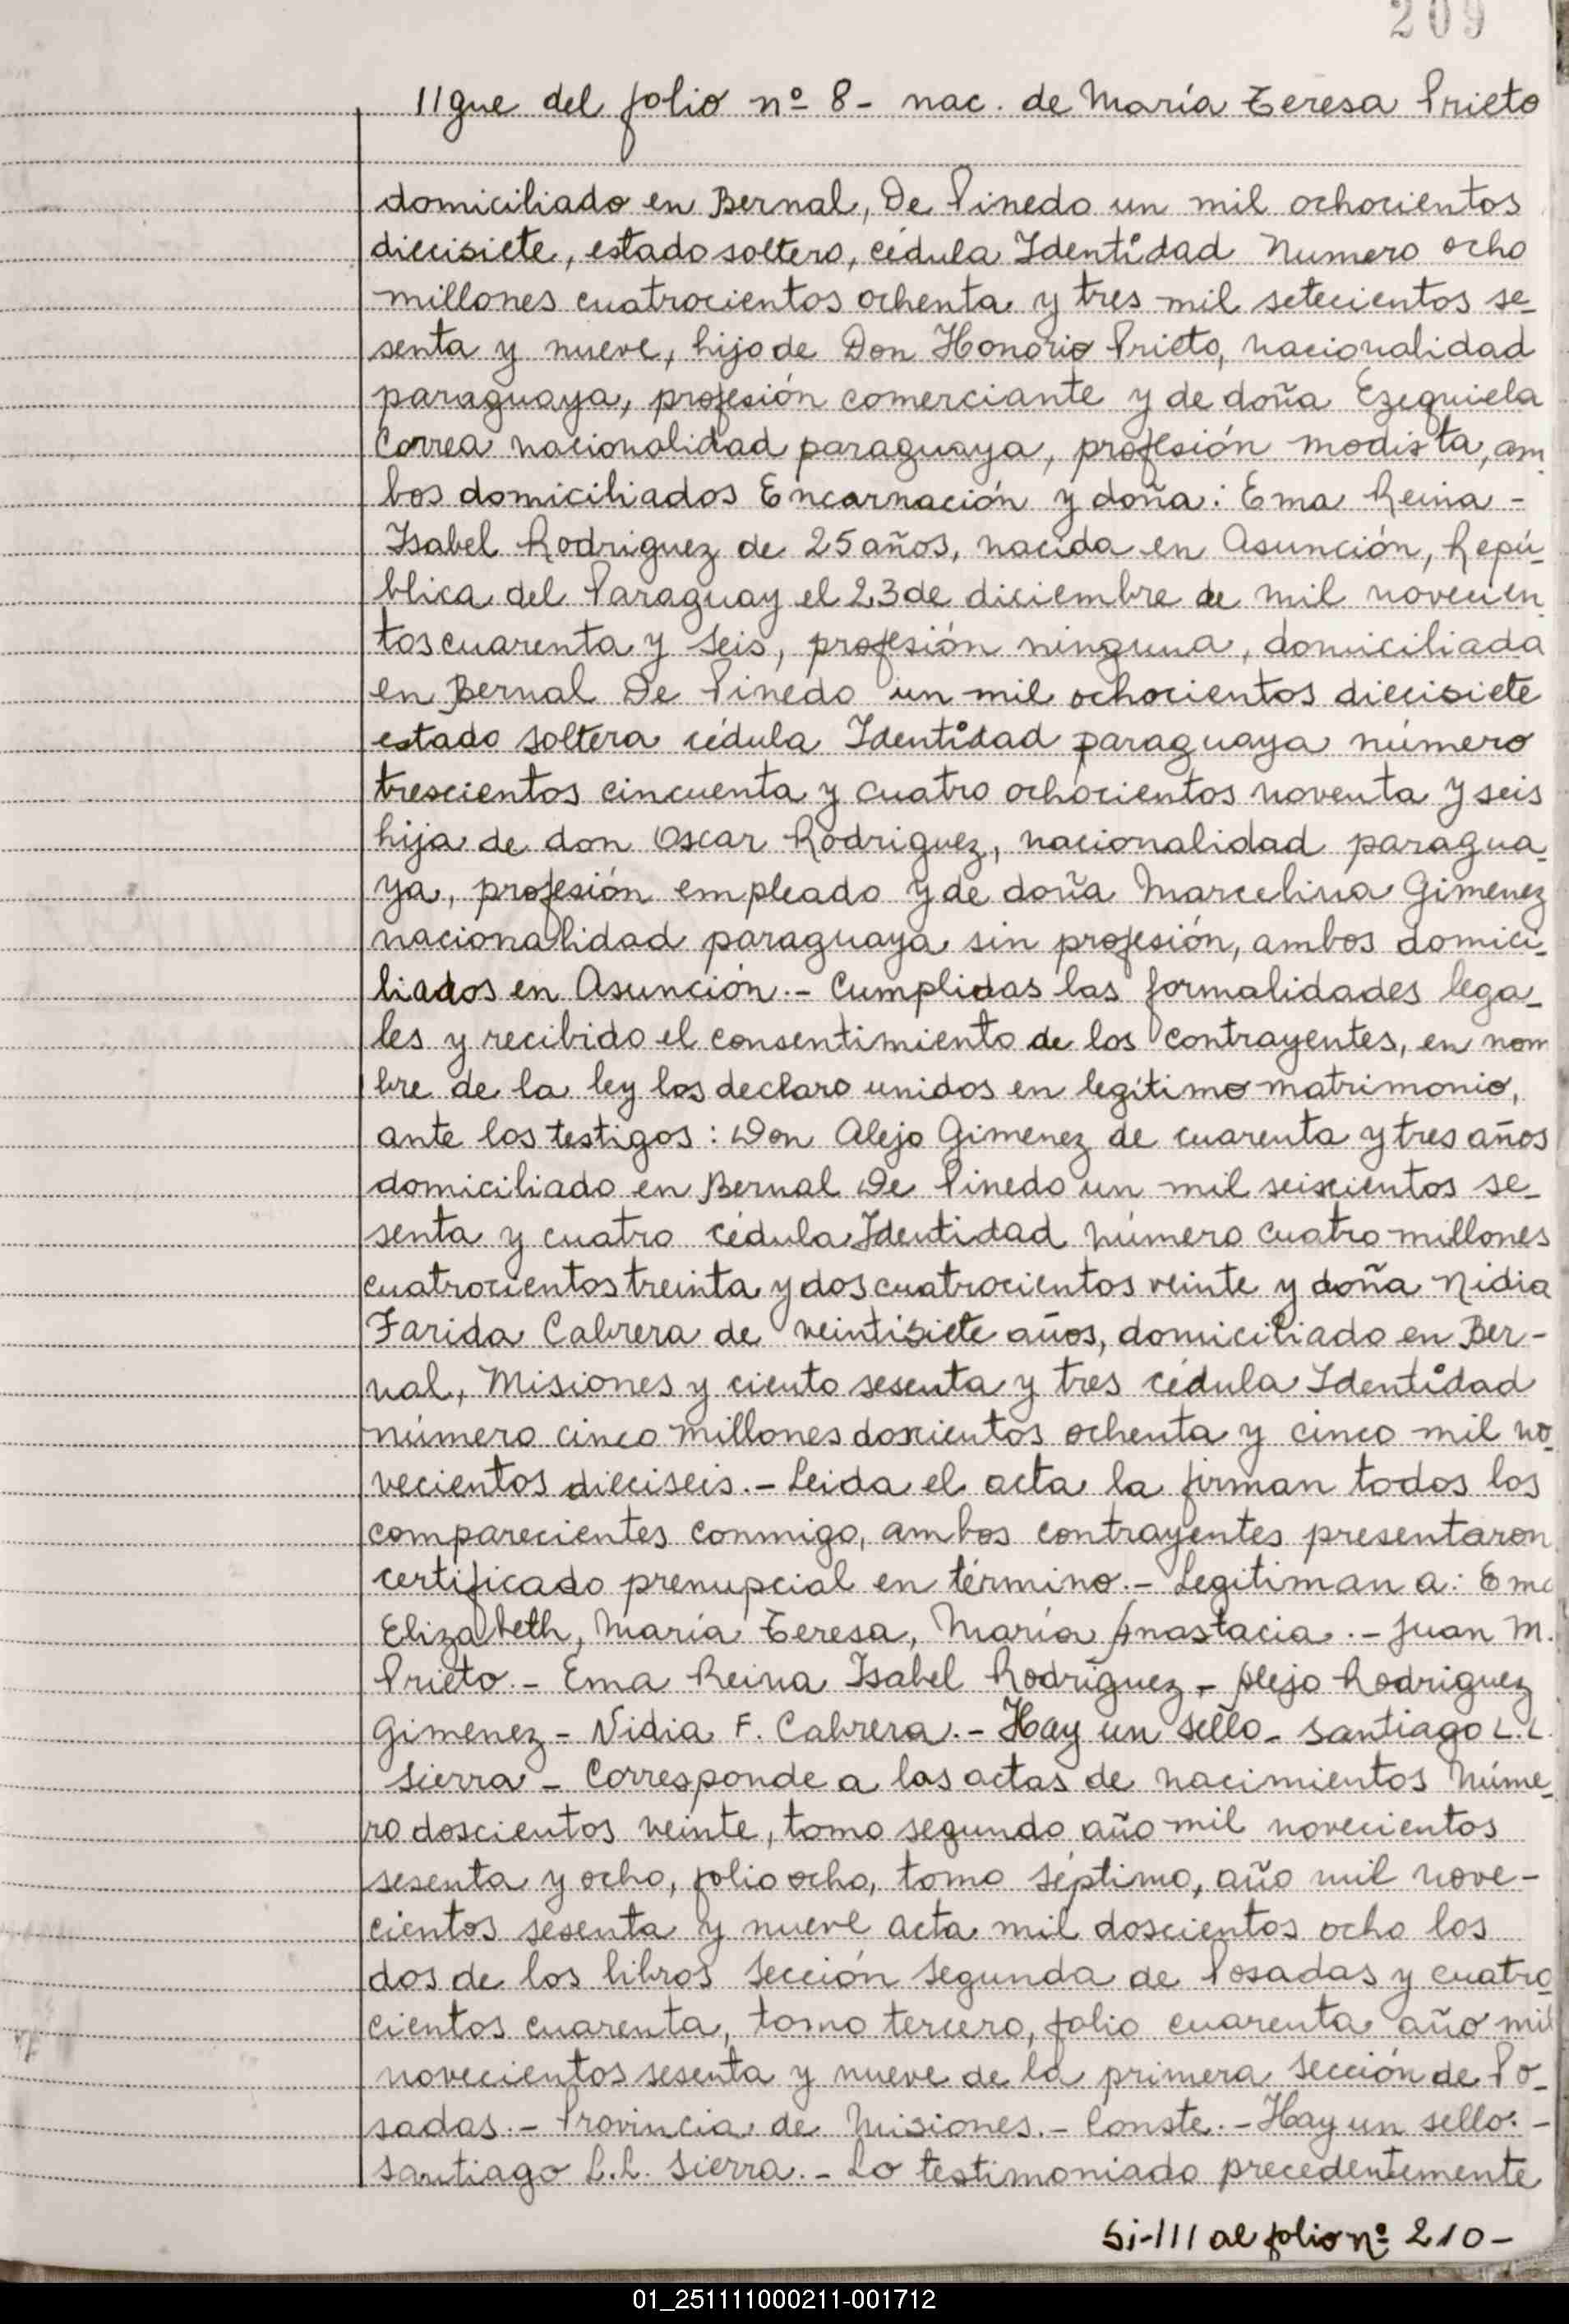 209
11gue del folio nº 8- nac. de María Teresa Prieto
domiciliado en Bernal, De Pinedo un mil ochocientos
diecisiete, estado soltero, cédula Identidad Numero ocho
millones cuatrocientos ochenta y tres mil setecientos se-
senta y nueve, hijo de Don Honorio Prieto, nacionalidad
paraguaya, profesión comerciante y de doña Ezequiela
Correa nacionalidad paraguaya, profesión modista, am
bos domiciliados Encarnación y doña: Ema Reina -
Isabel Rodriguez de 25 años, nacida en Asunción, Repú-
blica del Paraguay el 23 de diciembre de mil novecien
tos cuarenta y seis, profesión ninguna, domiciliada
en Bernal De Pinedo un mil ochocientos diecisiete
estado soltera cédula Identidad paraguaya número
trescientos cincuenta y cuatro ochocientos noventa y seis
hija de don Oscar Rodriguez, nacionalidad paragua-
ya, profesión empleado y de doña Marcelina Gimenez
nacionalidad paraguaya sin profesión, ambos domici-
liados en Asunción.- Cumplidas las formalidades lega-
les y recibido el consentimiento de los contrayentes, en nom
bre de la ley los declaro unidos en legítimo matrimonio,
ante los testigos: Don Alejo Gimenez de cuarenta y tres años
domiciliado en Bernal De Pinedo un mil seiscientos se-
senta y cuatro cédula Identidad número cuatro millones
cuatrocientos treinta y dos cuatrocientos veinte y doña Nidia
Farida Cabrera de veintisiete años, domiciliado en Ber-
nal, Misiones y ciento sesenta y tres cédula Identidad
número cinco millones doscientos ochenta y cinco mil no-
vecientos dieciseis.- Leida el acta la firman todos los
comparecientes conmigo, ambos contrayentes presentaron
certificado prenupcial en término.- Legitiman a: Ema
Elizabeth, María Teresa, María Anastacia.- Juan M.
Prieto.- Ema Reina Isabel Rodriguez - Alejo Rodriguez
Gimenez - Nidia F. Cabrera.- Hay un sello- Santiago L.L.
Sierra - Corresponde a las actas de nacimientos Núme-
ro doscientos veinte, tomo segundo año mil novecientos
sesenta y ocho, folio ocho, tomo séptimo, año mil nove-
cientos sesenta y nueve acta mil doscientos ocho los
dos de los libros sección segunda de Posadas y cuatro-
cientos cuarenta, tomo tercero, folio cuarenta año mil
novecientos sesenta y nueve de la primera sección de Po-
sadas.- Provincia de Misiones.- Conste.- Hay un sello.-
Santiago L.L. Sierra.- Lo testimoniado precedentemente
Si-111 al folio nº 210-
01_251111000211-001712